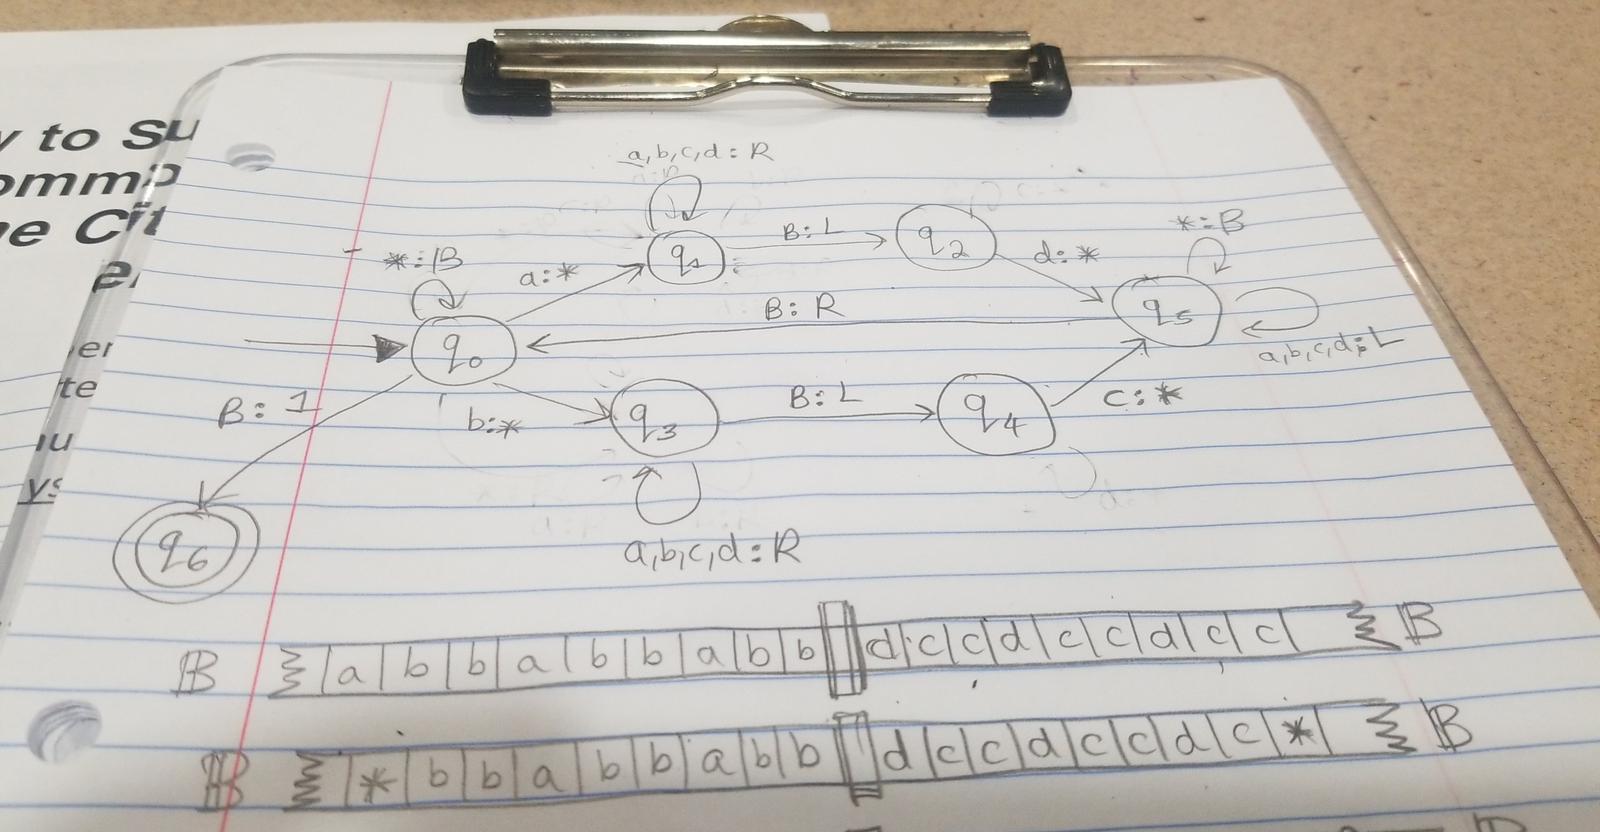 y to Su
omm?
e Cit
e
er
te
ıu
ys
a,b,c,d: R
*:B
*:B
a:*
q1
B: L
q2
d:*
B: R
q5
a,b,c,d: L
q0
B: 1
b:*
q3
B: L
q4
c:*
q6
a,b,c,d: R
B a b b a b b a b b d c c d c c d c c B
B * b b a b b a b b d c c d c c d c * B